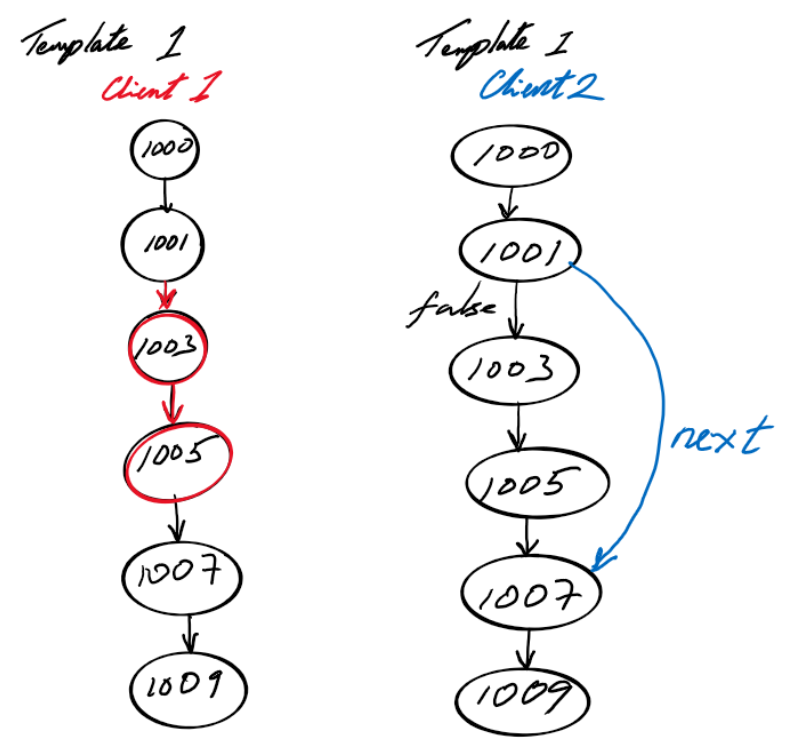 Template 1
Client 1
1000
1001
1003
1005
1007
1009
Template 1
Client 2
1000
1001
false
1003
1005
next
1007
1009